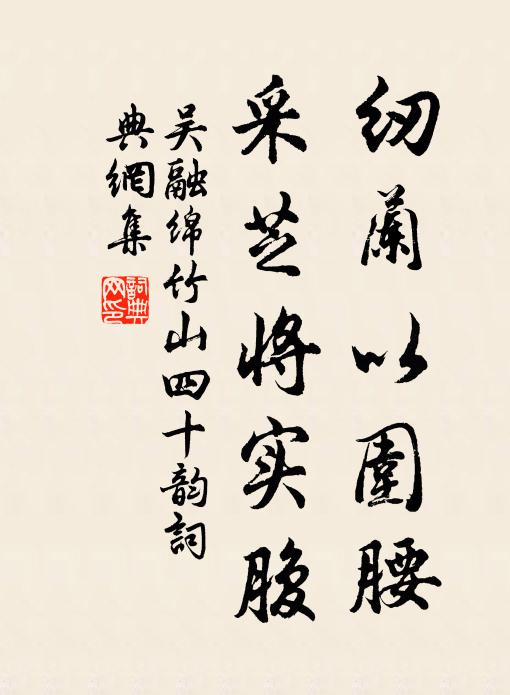 纫蘭以圍腰
采芝将实腹
吴融绵竹山四十韵詞
典網集
詞典
网印